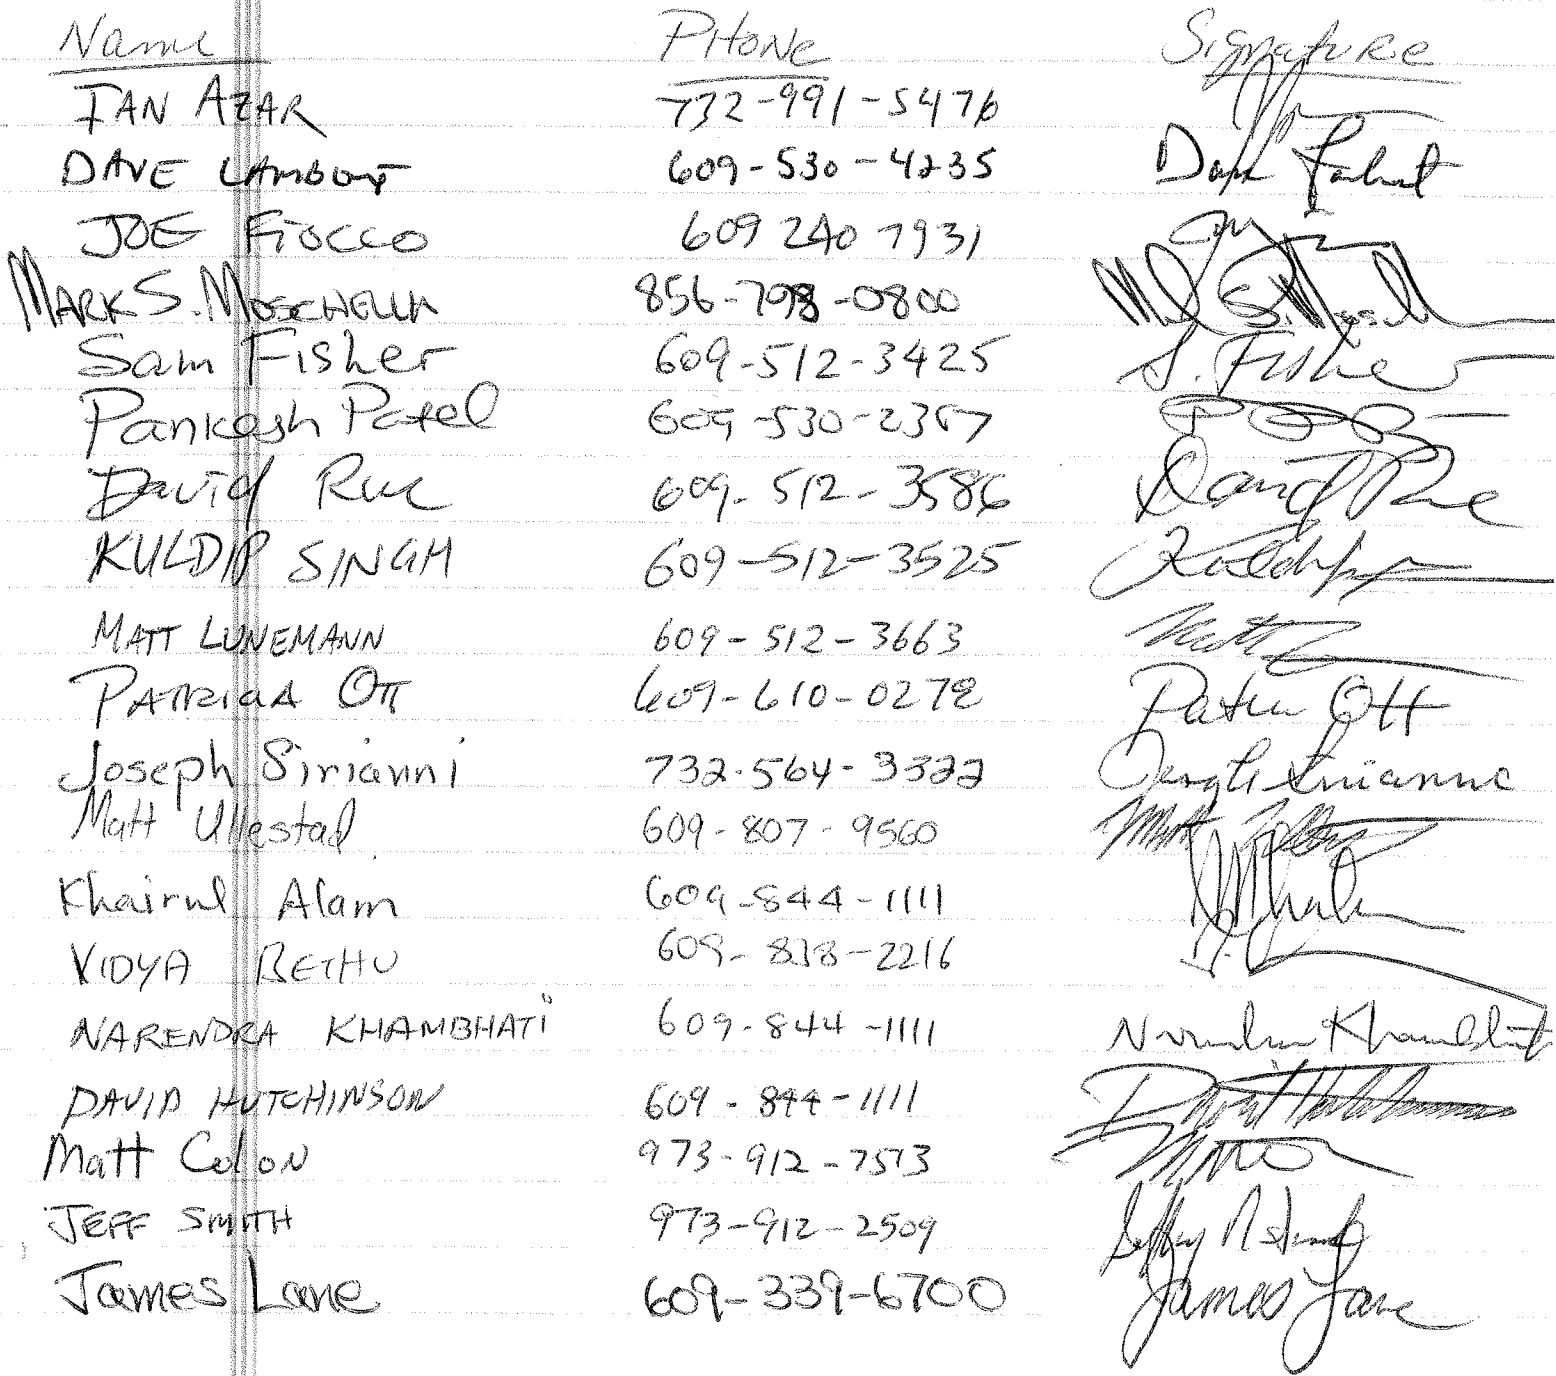 Name PHONE Signature
IAN AZAR 732-991-5476
DAVE LAMBERT 609-530-4235 Dave Lambert
JOE FIOCCO 609 240 7931
MARK S. MOSCHELLA 856-798-0800 M S. Mosch
Sam Fisher 609-512-3425 S. Fisher
Pankesh Patel 609-530-2357
David Rue 609-512-3586 David Rue
KULDIP SINGH 609-512-3525 Kuldip
MATT LUNEMANN 609-512-3663 Matt
PATRICIA OTT 609-610-0272 Patricia Ott
Joseph Sirianni 732-564-3322 Joseph Sirianni
Matt Ullestad 609-807-9560 Matt
Khairul Alam 609-844-1111
VIDYA BETHU 609-838-2216
NARENDRA KHAMBHATI 609-844-1111 Narendra Khambhati
DAVID HUTCHINSON 609-844-1111 David Hutchinson
Matt Colon 973-912-7573
JEFF SMITH 973-912-2509 Jeffrey Smith
James Lane 609-339-6700 James Lane